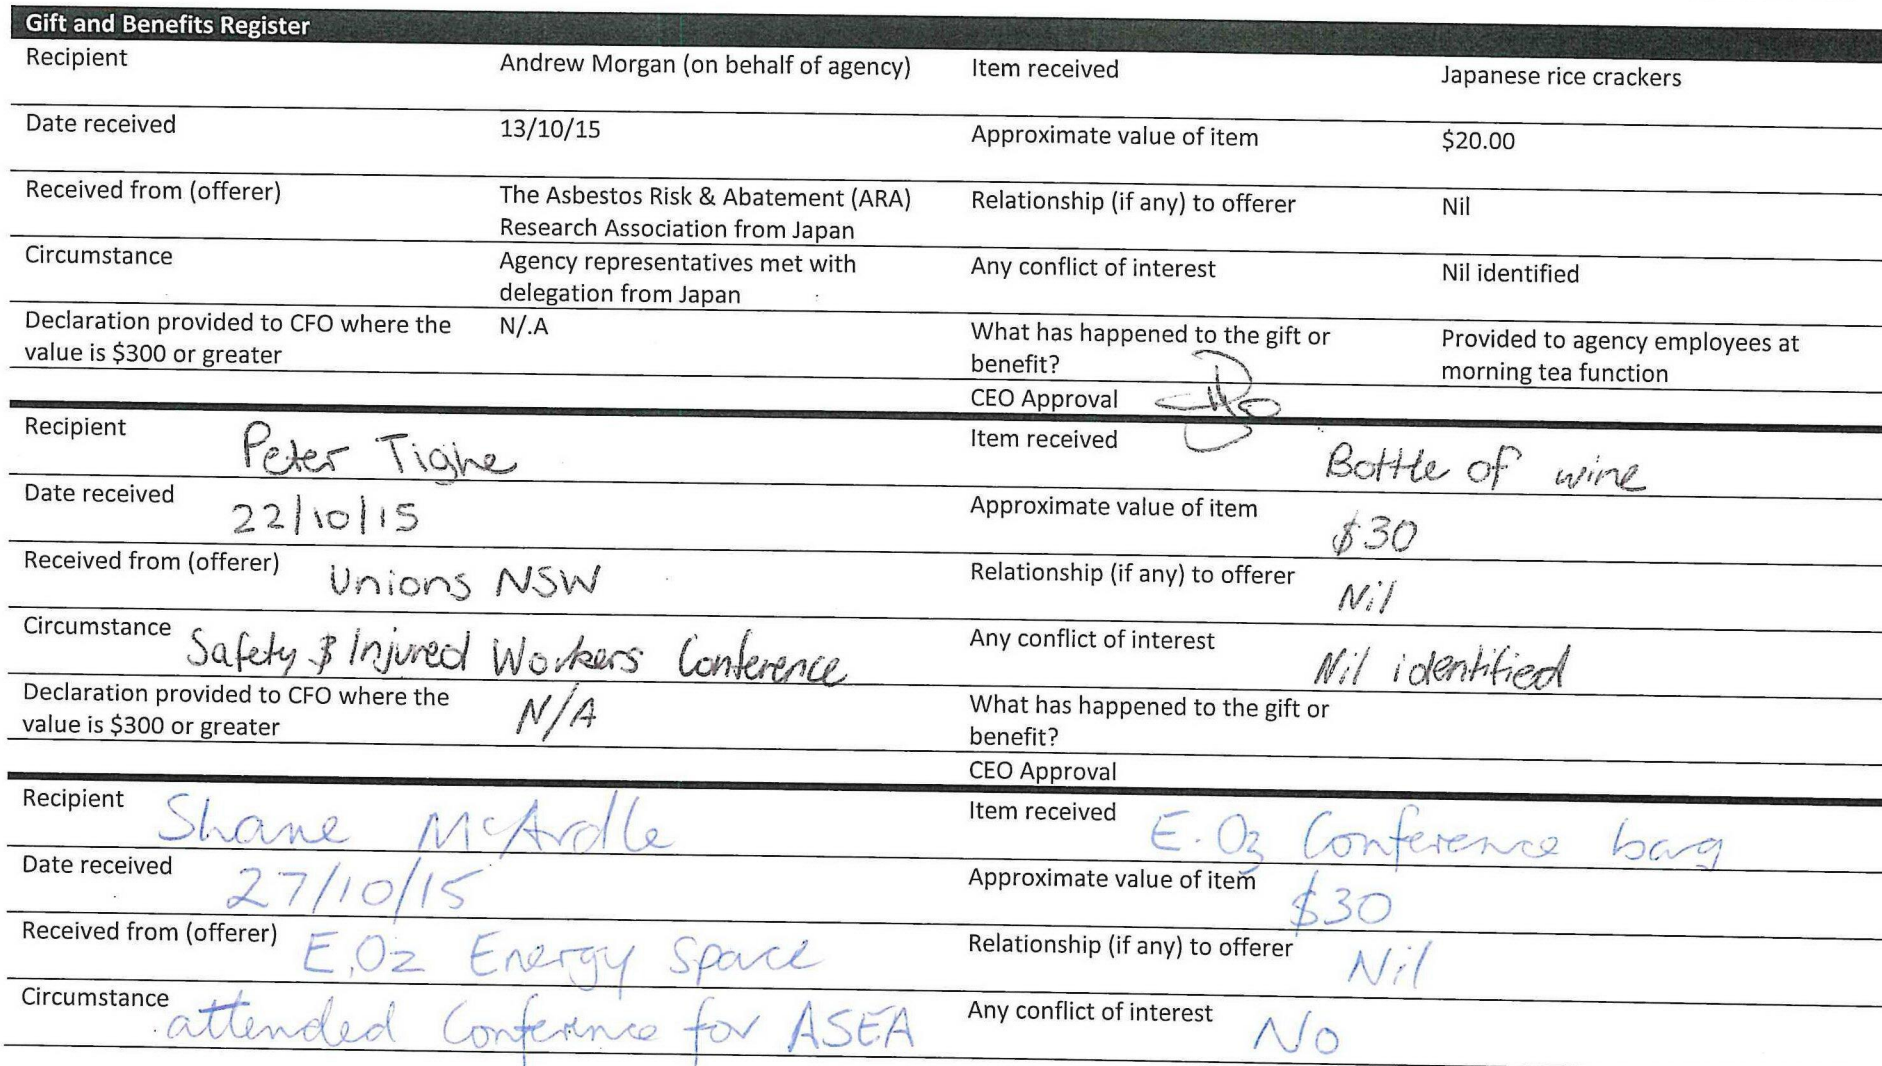 Gift and Benefits Register
Recipient Andrew Morgan (on behalf of agency) Item received Japanese rice crackers
Date received 13/10/15 Approximate value of item $20.00
Received from (offerer) The Asbestos Risk & Abatement (ARA) Relationship (if any) to offerer Nil
Research Association from Japan
Circumstance Agency representatives met with Any conflict of interest Nil identified
delegation from Japan
Declaration provided to CFO where the N/.A What has happened to the gift or Provided to agency employees at
value is $300 or greater benefit? morning tea function
CEO Approval
Recipient Peter Tighe Item received Bottle of wine
Date received 22/10/15 Approximate value of item $30
Received from (offerer) Unions NSW Relationship (if any) to offerer Nil
Circumstance Safety & Injured Workers Conference Any conflict of interest Nil identified
Declaration provided to CFO where the N/A What has happened to the gift or
value is $300 or greater benefit?
CEO Approval
Recipient Shane McArdle Item received E.Oz Conference bag
Date received 27/10/15 Approximate value of item $30
Received from (offerer) E.Oz Energy Space Relationship (if any) to offerer Nil
Circumstance attended Conference for ASEA Any conflict of interest No